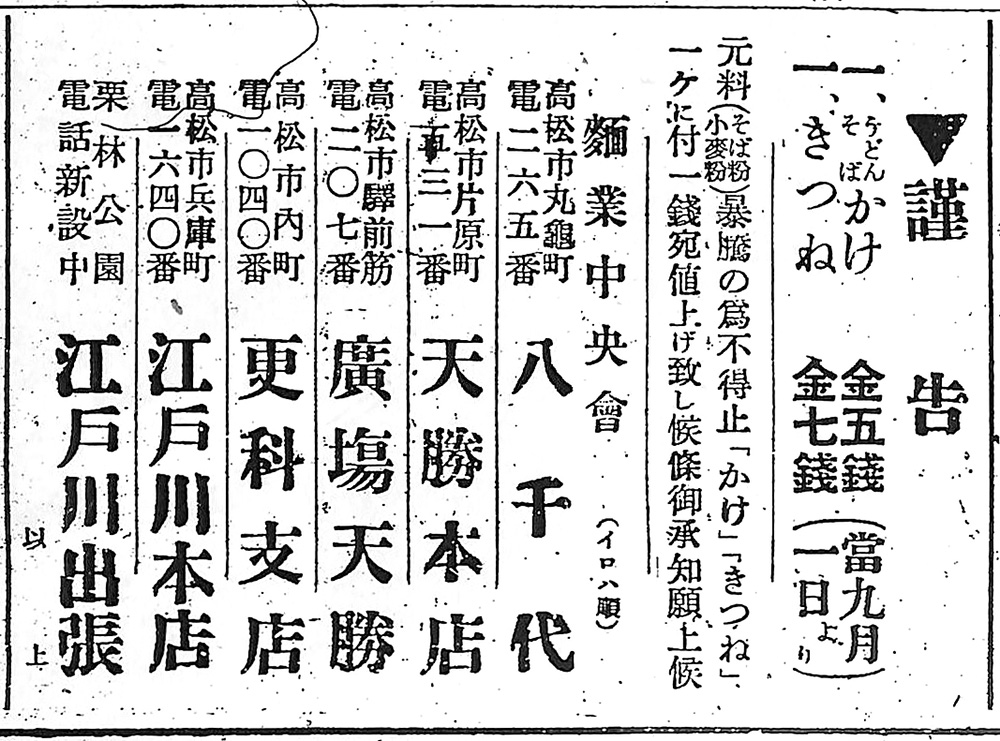 ▼謹告
一、うどんそばかけ 金五錢
一、きつね 金七錢
(當九月一日より)
元料(そば粉小麥粉)暴騰の爲不得止「かけ」「きつね」
一ケに付一錢宛値上げ致し候條御承知願上候
麵業中央會 (イロハ順)
高松市丸龜町
電二六五番
八千代
高松市片原町
電五三一番
天勝本店
高松市驛前筋
電二〇七番
廣塲天勝
高松市内町
電一〇四〇番
更科支店
高松市兵庫町
電一六四〇番
江戸川本店
栗林公園
電話新設中
江戸川出張
以上